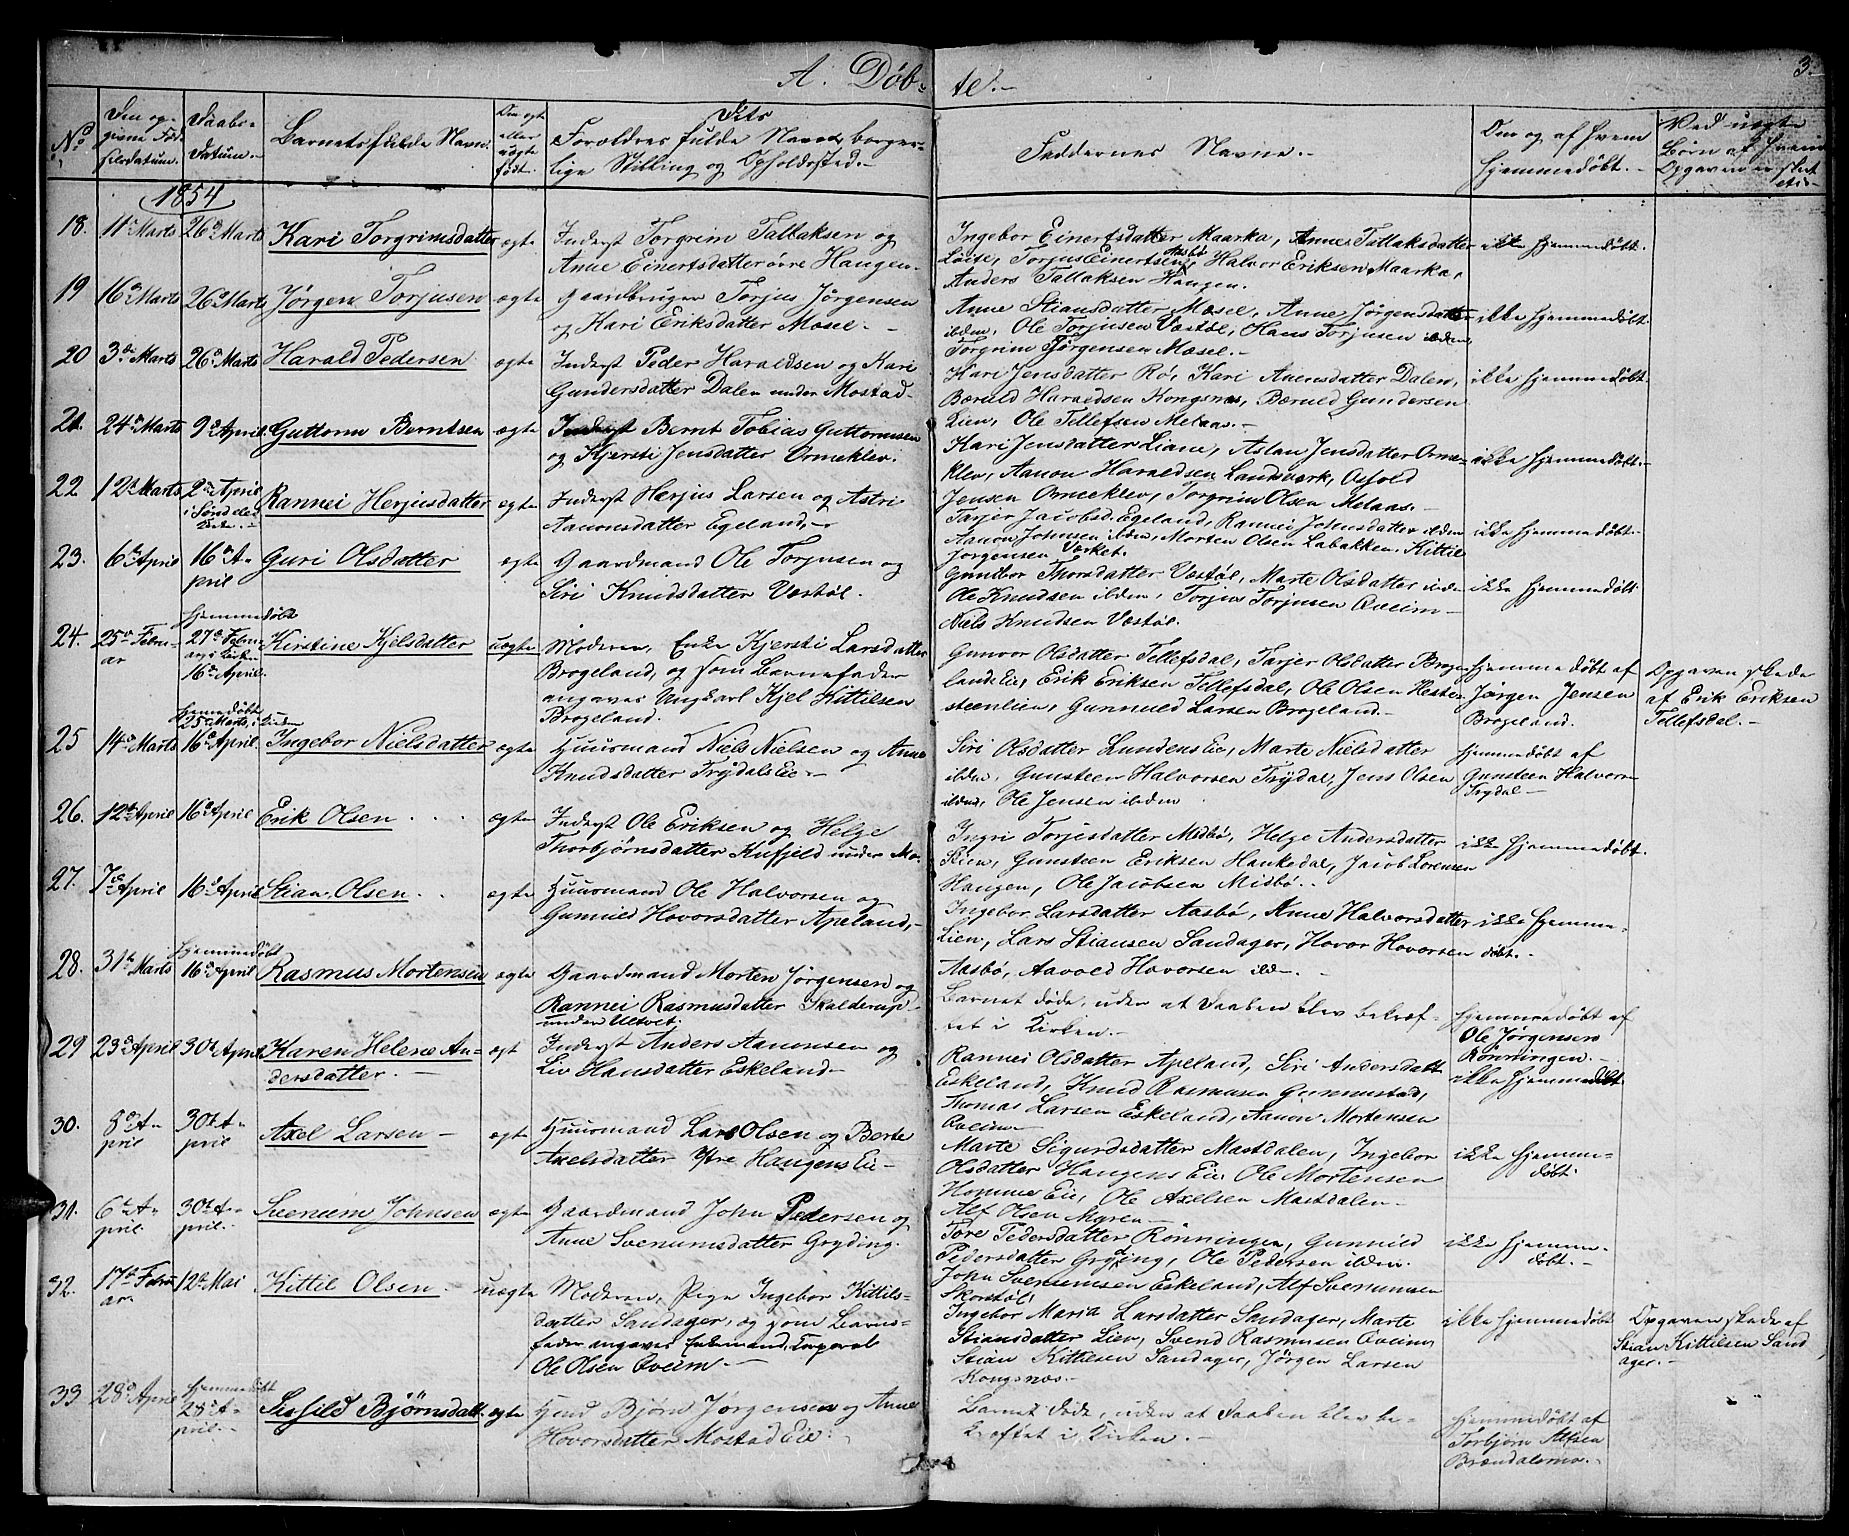 A. Døb- te.-
3.
No
Den op-
givne Fød-
selsdatum.
Daabs-
datum.-
Barnets fulde Navn.
Om ægte
eller
uægte
født.
Dets
Forældres fulde Navne, borger-
lige Stilling og Opholdssted.-
Faddernes Navne.-
Om og af hvem
hjemmedøbt.-
Ved uægte
Børn af hvem
Opgaven er skeet
1854
18. 11te Marts 26de Marts Kari Torgrimsdatter ægte
Inderst Torgrim Tallaksen og
Anne Einertsdatter övre Haugen.
Ingebor Einertsdatter Maarka, Anne Tallaksdatter
Løite, Torjus Einertsen Aasbø, Halvor Eriksen Maarka,
Anders Tallaksen Haugen.
ikke hjemmedøbt.
19 16de Marts 26de Marts Jørgen Torjusen ægte
Gaardbruger Torjus Jørgensen
og Kari Eriksdatter Mosel.-
Anne Stiansdatter Mosel, Anne Jørgensdatter
ibdm, Ole Torjusen Vestøl, Hans Torjusen ibdm,
Torgrim Jørgensen Mosel.-
ikke hjemmedøbt.
20 3die Marts 26de Marts Harald Pedersen ægte
Inderst Peder Haraldsen og Kari
Gundersdatter Dalen under Mostad-
Kari Jensdatter Rø, Kari Anensdatter Dalen,
Bæruld Haraldsen Kongsnes, Bæruld Gundersen
Lien, Ole Tellefsen Melaas.-
ikke hjemmedøbt.
21. 24de Marts 9de April. Guttorm Berntsen ægte
Inderst Bernt Tobias Guttormsen
og Kjersti Jensdatter Ormeklev.
Kari Jensdatter Liane, Aslau Jensdatter Orme-
klev, Aanon Haraldsen Landsverk,
Jensen Ormeklev, Torgrim Olsen Melaas.-
ikke hjemmedøbt.-
22 12te Marts 2den April
i Sønde
Kirke.-
Rannei Herjusdatter ægte
Inderst Herjus Larsen og Astri
Aanonsdatter Egeland,-
Tarjer Jacobsd. Egeland, Rannei Johnsdatter ibdm
Aanon Johnsen ibdm, Morten Olsen Labakken, Kittil
Jørgensen Værket.
ikke hjemmedøbt.-
23. 6te April 16de A-
pril
Guri Olsdatter ægte
Gaardmand Ole Torjusen og
Siri Knudsdatter Vestøl.
Gunbor Thorsdatter Vestøl, Marte Olsdatter ibdm
Ole Knudsen ibdm, Torjus Torjusen Qveim-
Niels Knudsen Vestøl.
ikke hjemmedøbt
24. 25de Febru-
ar
hjemmedøbt
27de Febru-
ar, i Kirken
16de April.
Kirstine Kjelsdatter uægte
Moderen, Enke Kjersti Larsdatter
Brogeland, og som Barnefader
angaves Ungkarl Kjel Kittilsen
Brogeland.
Gunvor Olsdatter Tellefsdal, Tarjer Olsdatter Broge-
lands Eie, Erik Eriksen Tellefsdal, Ole Olsen Hesten
steenlien, Gunnuld Larsen Brogeland.-
Hjemmedøbt af
Jørgen Jensen
Brogeland.
Opgaven skede
af Erik Eriksen
Tellefsdal.-
25 14de Marts
hjemmedøbt
25de Marts, i Kirken
16de April.
Ingebor Nielsdatter ægte
Huusmand Niels Nielsen og Anne
Knudsdatter Trydals Eie.-
Siri Olsdatter Lundens Eie, Marte Nielsdatter
ibdm, Gunsteen Halvorsen Trydal, Jens Olsen
ibdm, Ole Jensen ibdem
hjemmedøbt af
Gunsteen Halvors
Trydal-
26. 12te April 16de April Erik Olsen . . . ægte
Inderst Ole Eriksen og Helge
Thorbjørnsdatter Kufjeld under Mo.
Ingri Torjusdatter Midbø, Helge Andersdatter
Skien, Gunsteen Eriksen Haukedal, Jacob Lorensen
Haugen, Ole Jacobsen Midbø.
ikke hjemmedøbt.
27. 7de April 16de April Stian Olsen. . ægte
Huusmand Ole Halvorsen og
Gunnild Hovorsdatter Apeland,-
Ingebor Larsdatter Aasbø, Anne Halvorsdatter
Lien, Lars Stiansen Sandager, Hovor Hovorsen
Aasbø, Aavold Hovorsen ibdm.
ikke hjemme-
døbt.-
28. 31te Marts
Hjemmedøbt
16de April
Rasmus Mortensen ægte
Gaardmand Morten Jørgensen og
Rannei Rasmusdatter Skalderup-
under Ulltvet.
Barnet døde, uden at Daaben blev bekræf-
tet i Kirken.-
hjemmedøbt af
Ole Jørgensen
Rønningen.-
29 23de April 30te April Karen Helene An-
dersdatter.-
ægt
Inderst Anders Aanonsen og
Liv Hansdatter Eskeland-
Rannei Olsdatter Apeland, Siri Andersdatt
Eskeland, Knud Rasmusen Gunnustad,
Thomas Larsen Eskeland, Aanon Mortensen
Qveim-
ikke hjemmedøbt
30. 8de A-
pril
30te A-
pril
Axel Larsen- ægte
Huusmand Lars Olsen og Berte
Axelsdatter Ytre Haugens Eie-
Marte Sigurdsdatter Mastdalen, Ingebor
Olsdatter Haugens Eie, Ole Mortensen
Homme Eie, Ole Axelsen Mastdalen-
Alf Olsen Myren-
ikke hjemme-
døbt.
31. 6te A-
pril
30te A-
pril.
Svenum Johnsen ægte
Gaardmand John Pedersen og
Anne Svenumsdatter Gryding.
Tore Pedersdatter Rønningen, Gunnild
Pedersdatter Gryding, Ole Pedersen ibdm.
John Svenumsen Eskeland, Alf Svenumsen
Skorstøl,
ikke hjemme-
døbt.-
32. 17de Febru-
ar.
12te Mai Kittil Olsen.- uægte
Moderen, Pige Ingebor Kittils-
datter Sandager, og som Barne-
fader angaves Enkemand, Corporal
Ole Olsen Qveim-
Ingebor Maria Larsdatter Sandager, Marte
Stiansdatter Lien, Svend Rasmusen Qveim,
Stian Kittilsen Sandager, Jørgen Larsen
Kongsnæs.-
ikke hjemmedøbt
Opgaven skede af
Stian Kittilsen Sand
ager.-
33 28de April
Hjemmedøbt
28de A-
pril.-
Sigfild Bjørnsdatt. ægte
Huusd Bjørn Jørgensen og Anne
Hovorsdatter Mostad Eie.
Barnet døde, uden at Daaben blev be-
kræftet i Kirken.-
hjemmedøbt af
Torbjørn Alfsen
Brændalsmo.-